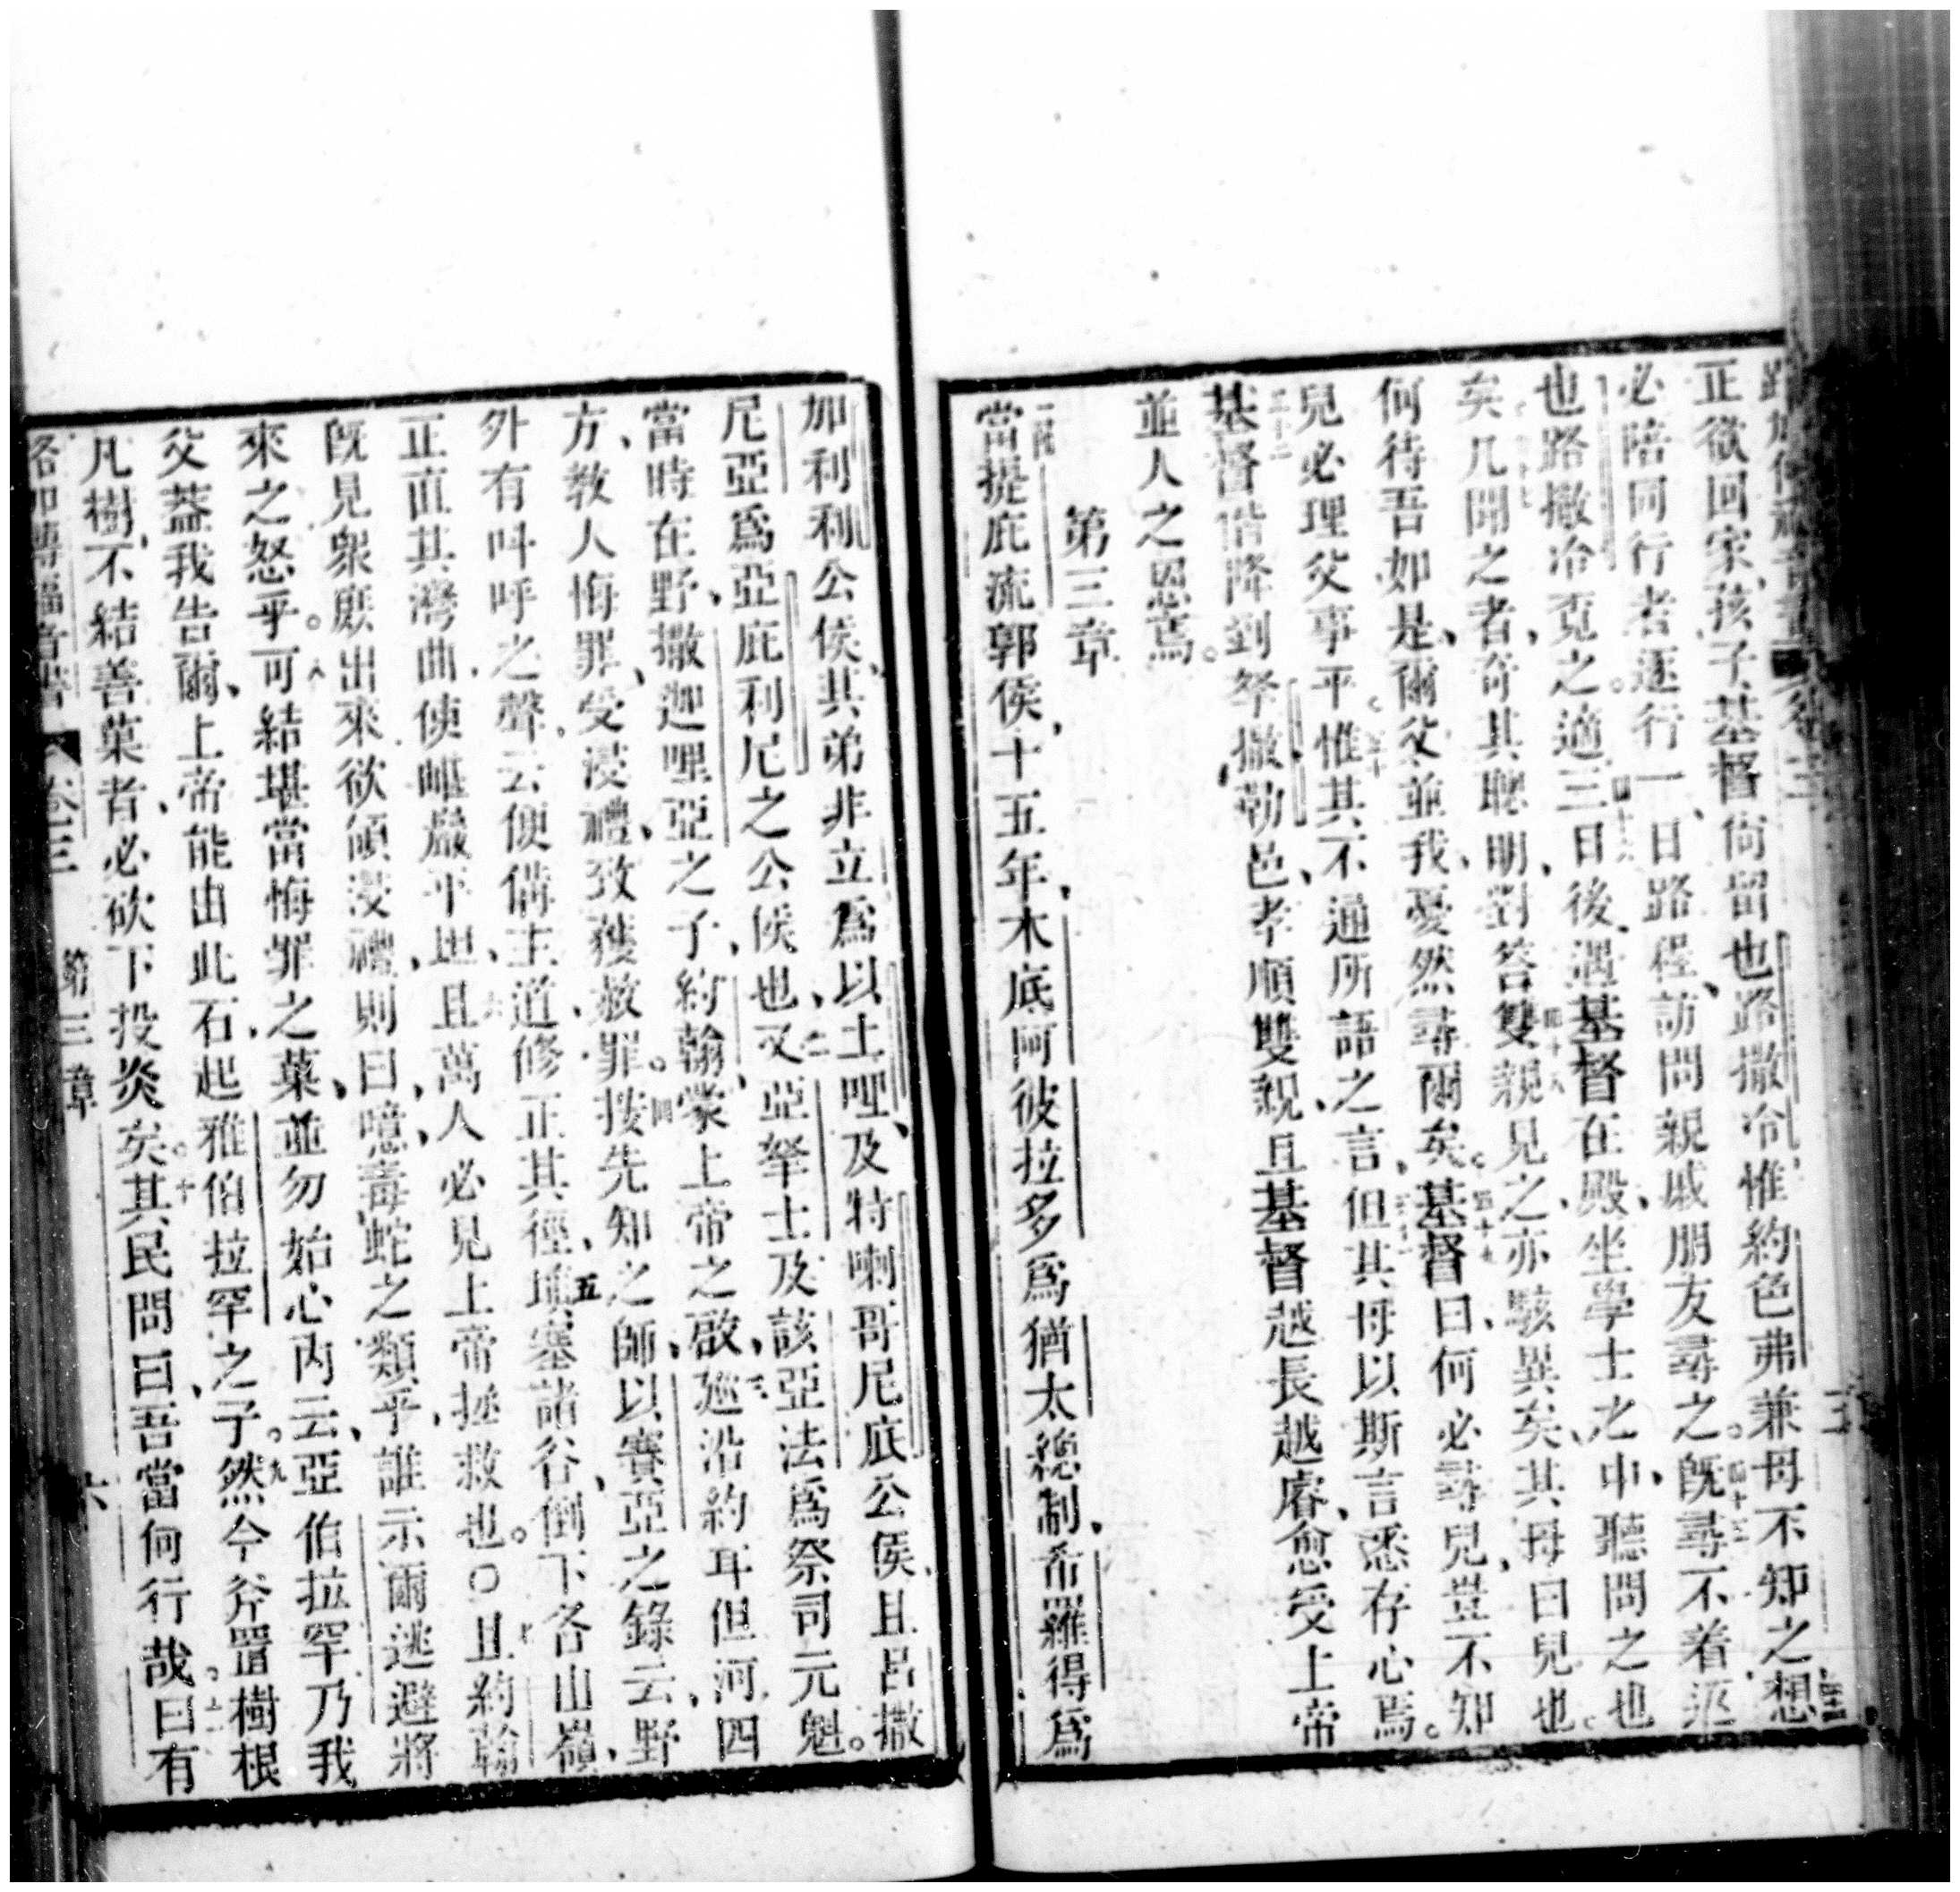 正欲回家、孩子基督尙留也路撒冷、惟約色弗兼母不知之、想
必陪同行者、遂行一日路程、訪問親戚朋友尋之。四十五旣尋不着、返
也路撒冷覓之。四十六適三日後、遇基督在殿、坐學士之中、聽問之也
矣、凡聞之者、奇其聰明、對答、四十八雙親見之、亦駭異矣、其母曰、兒也。
何待吾如是、爾父並我、憂然尋爾矣。四十九基督曰、何必尋兒、豈不知
兒必理父事乎。五十惟其不通所語之言、五十一但其母以斯言悉存心焉。
五十二基督偕降到拏撒勒邑、孝順雙親、且基督越長越睿、愈受上帝
並人之恩焉。
第三章
一節當提庇流郭侯、十五年、本底阿彼拉多爲猶太總制、希羅得爲
加利利公侯、其弟非立爲以土哩、及特喇哥尼底公侯、且呂撒
尼亞爲亞庇利尼之公侯也、二又亞拏士及該亞法爲祭司元魁。
當時在野、撒迦哩亞之子、約翰、蒙上帝之啟、三廵沿約耳但河四
方、教人悔罪、受浸禮、致獲救罪。四按先知之師、以賽亞之錄云、野
外有呌呼之聲、云、便備主道、修正其徑、五塡塞諸谷、倒下各山嶺、
正直其灣曲、使崎巖平坦、六且萬人必見上帝拯救也。〇七且約翰
旣見衆庶出來欲領浸禮、則曰、噫、毒蛇之類乎、誰示爾逃避將
來之怒乎。八可結堪當悔罪之菓、並勿始心內云、亞伯拉罕乃我
父、葢我告爾、上帝能由此石、起雅伯拉罕之子。九然今斧置樹根
凡樹、不結善菓者、必砍下投炎矣。十其民問曰、吾當何行哉。十一曰、有
路加傳福音書 卷三 第三章 六